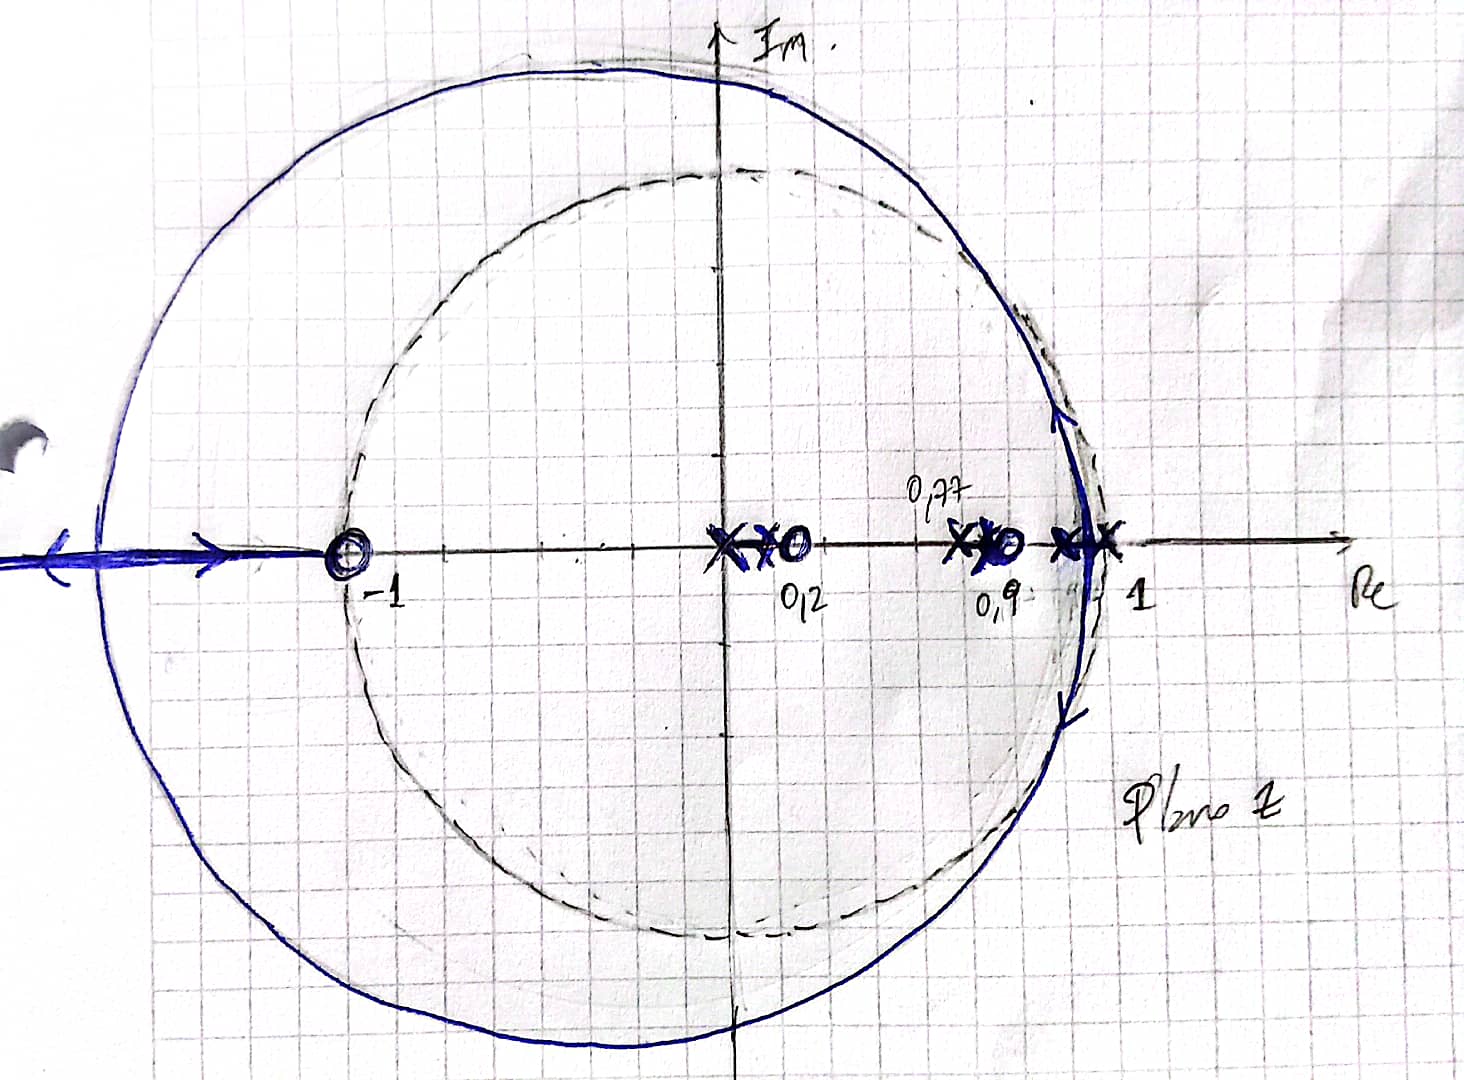 Im.
0,77
-1
0,2
0,9
1
Re
Plano z